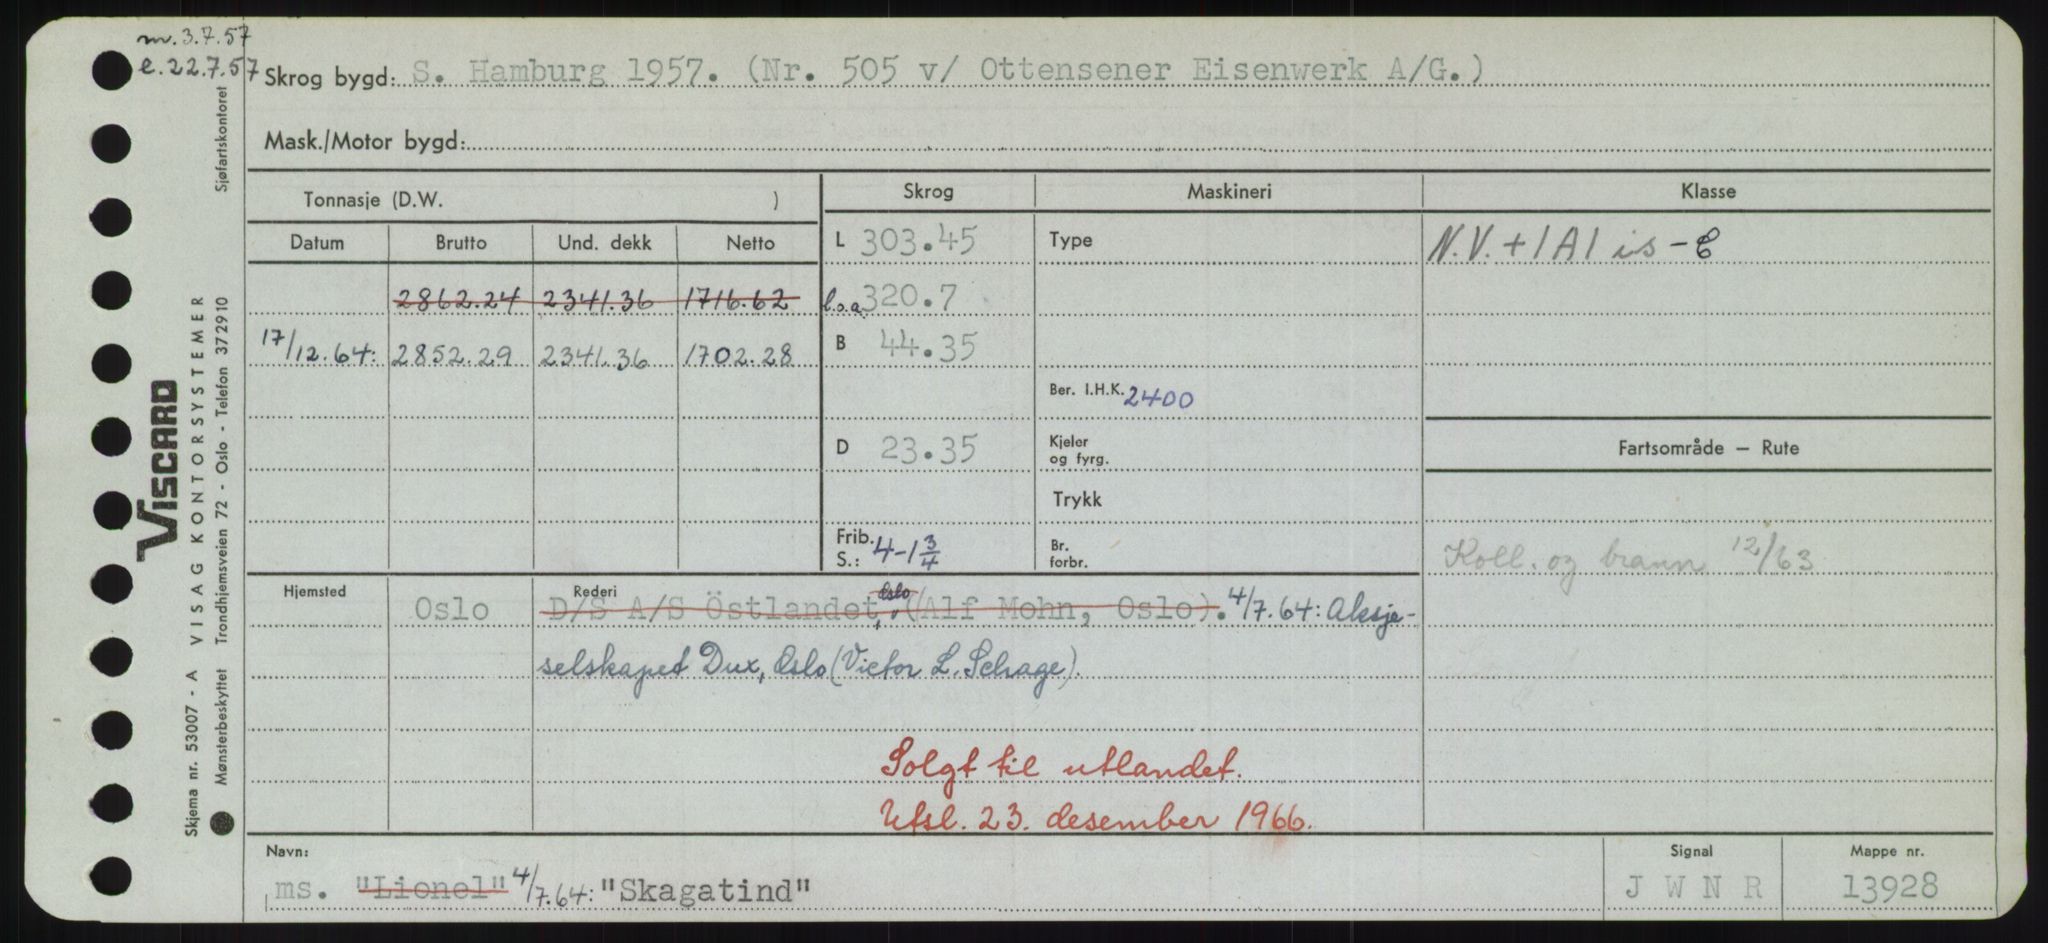 m. 3.7.57
e. 22.7.57
Skrog bygd: S. Hamburg 1957. (Nr. 505 v/ Ottensener Eisenwerk A/G.)
Mask./Motor bygd:
Tonnasje (D.W. )
Skrog
Maskineri
Klasse
Datum Brutto Und. dekk Netto
L 303.45
Type
N.V. + 1A1 is - E
2862.24 2341.36 1716.62
l.o.a. 320.7
17/12.64: 2852.29 2341.36 1702.28
B 44.35
Ber. I.H.K. 2400
D 23.35
Kjeler
og fyrg.
Fartsområde – Rute
Trykk
Frib.
S.: 4-1 3/4
Br.
forbr.
Koll. og brann 12/63
Hjemsted
Rederi
Oslo D/S A/S Östlandet, Oslo (Alf Mohn, Oslo). 4/7.64: Aksje-
selskapet Dux, Oslo (Victor L. Schage).
Solgt til utlandet.
Utsl. 23. desember 1966.
Navn:
Signal
Mappe nr.
ms. "Lionel" 4/7.64: "Skagatind"
J W N R
13928
VISCARD
VISAG KONTORSYSTEMER
Skjema nr. 53007 - A
Mønsterbeskyttet Trondhjemsveien 72 - Oslo - Telefon 372910 Sjøfartskontoret